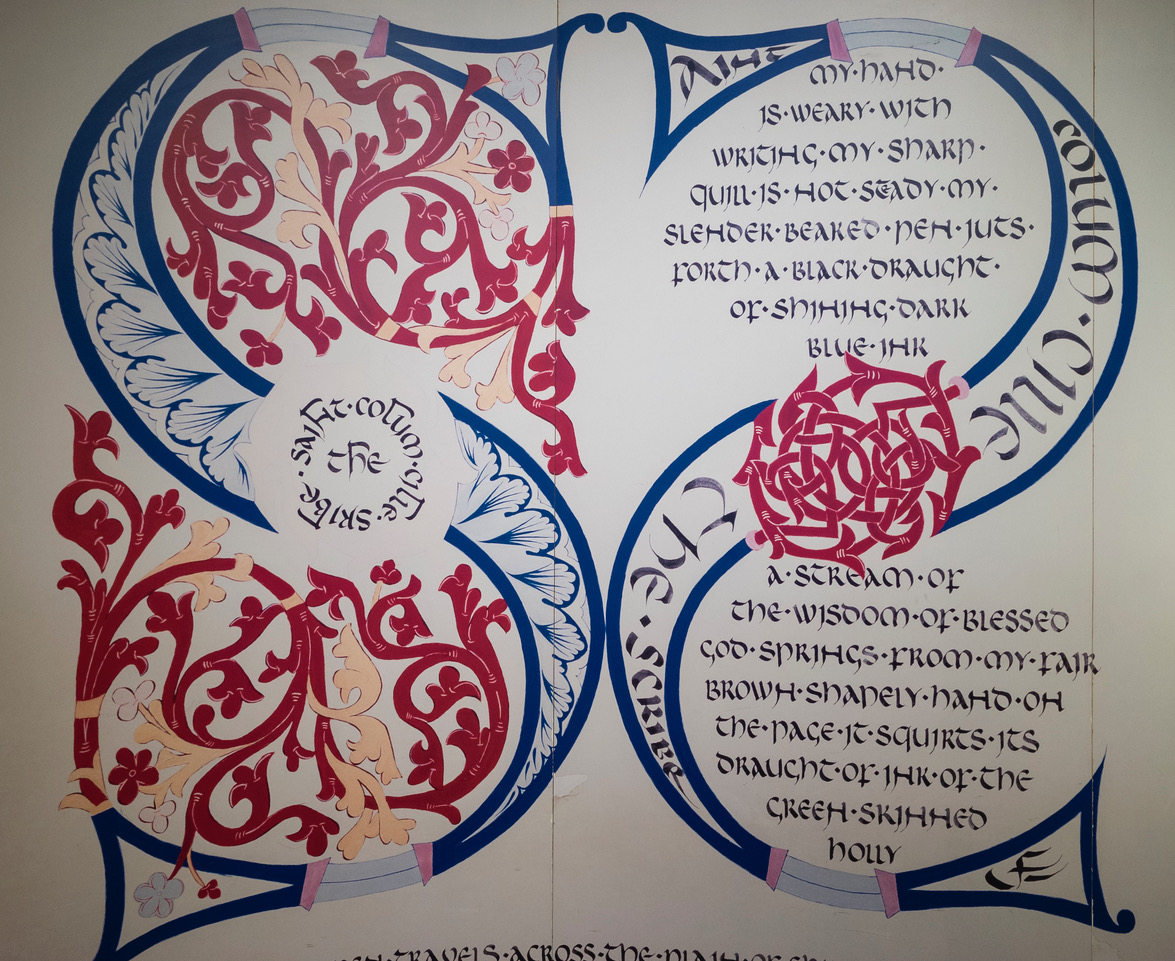 SAINT·COLUM·CILLE·
the
AINT
COLUM·CILLE
the·SCRIBE
MY·HAND·
IS·WEARY·WITH
WRITING·MY·SHARP·
QUILL·IS·NOT·STEADY·MY·
SLENDER·BEAKED·PEN·JUTS·
FORTH·A·BLACK·DRAUGHT·
OF·SHINING·DARK
BLUE·INK
A·STREAM·OF
THE·WISDOM·OF·BLESSED
GOD·SPRINGS·FROM·MY·FAIR
BROWN·SHAPELY·HAND·ON
THE·PAGE·IT·SQUIRTS·ITS
DRAUGHT·OF·INK·OF·THE
GREEN·SKINNED
HOLLY
TRAVELS·ACROSS·THE·PLAIN·OF